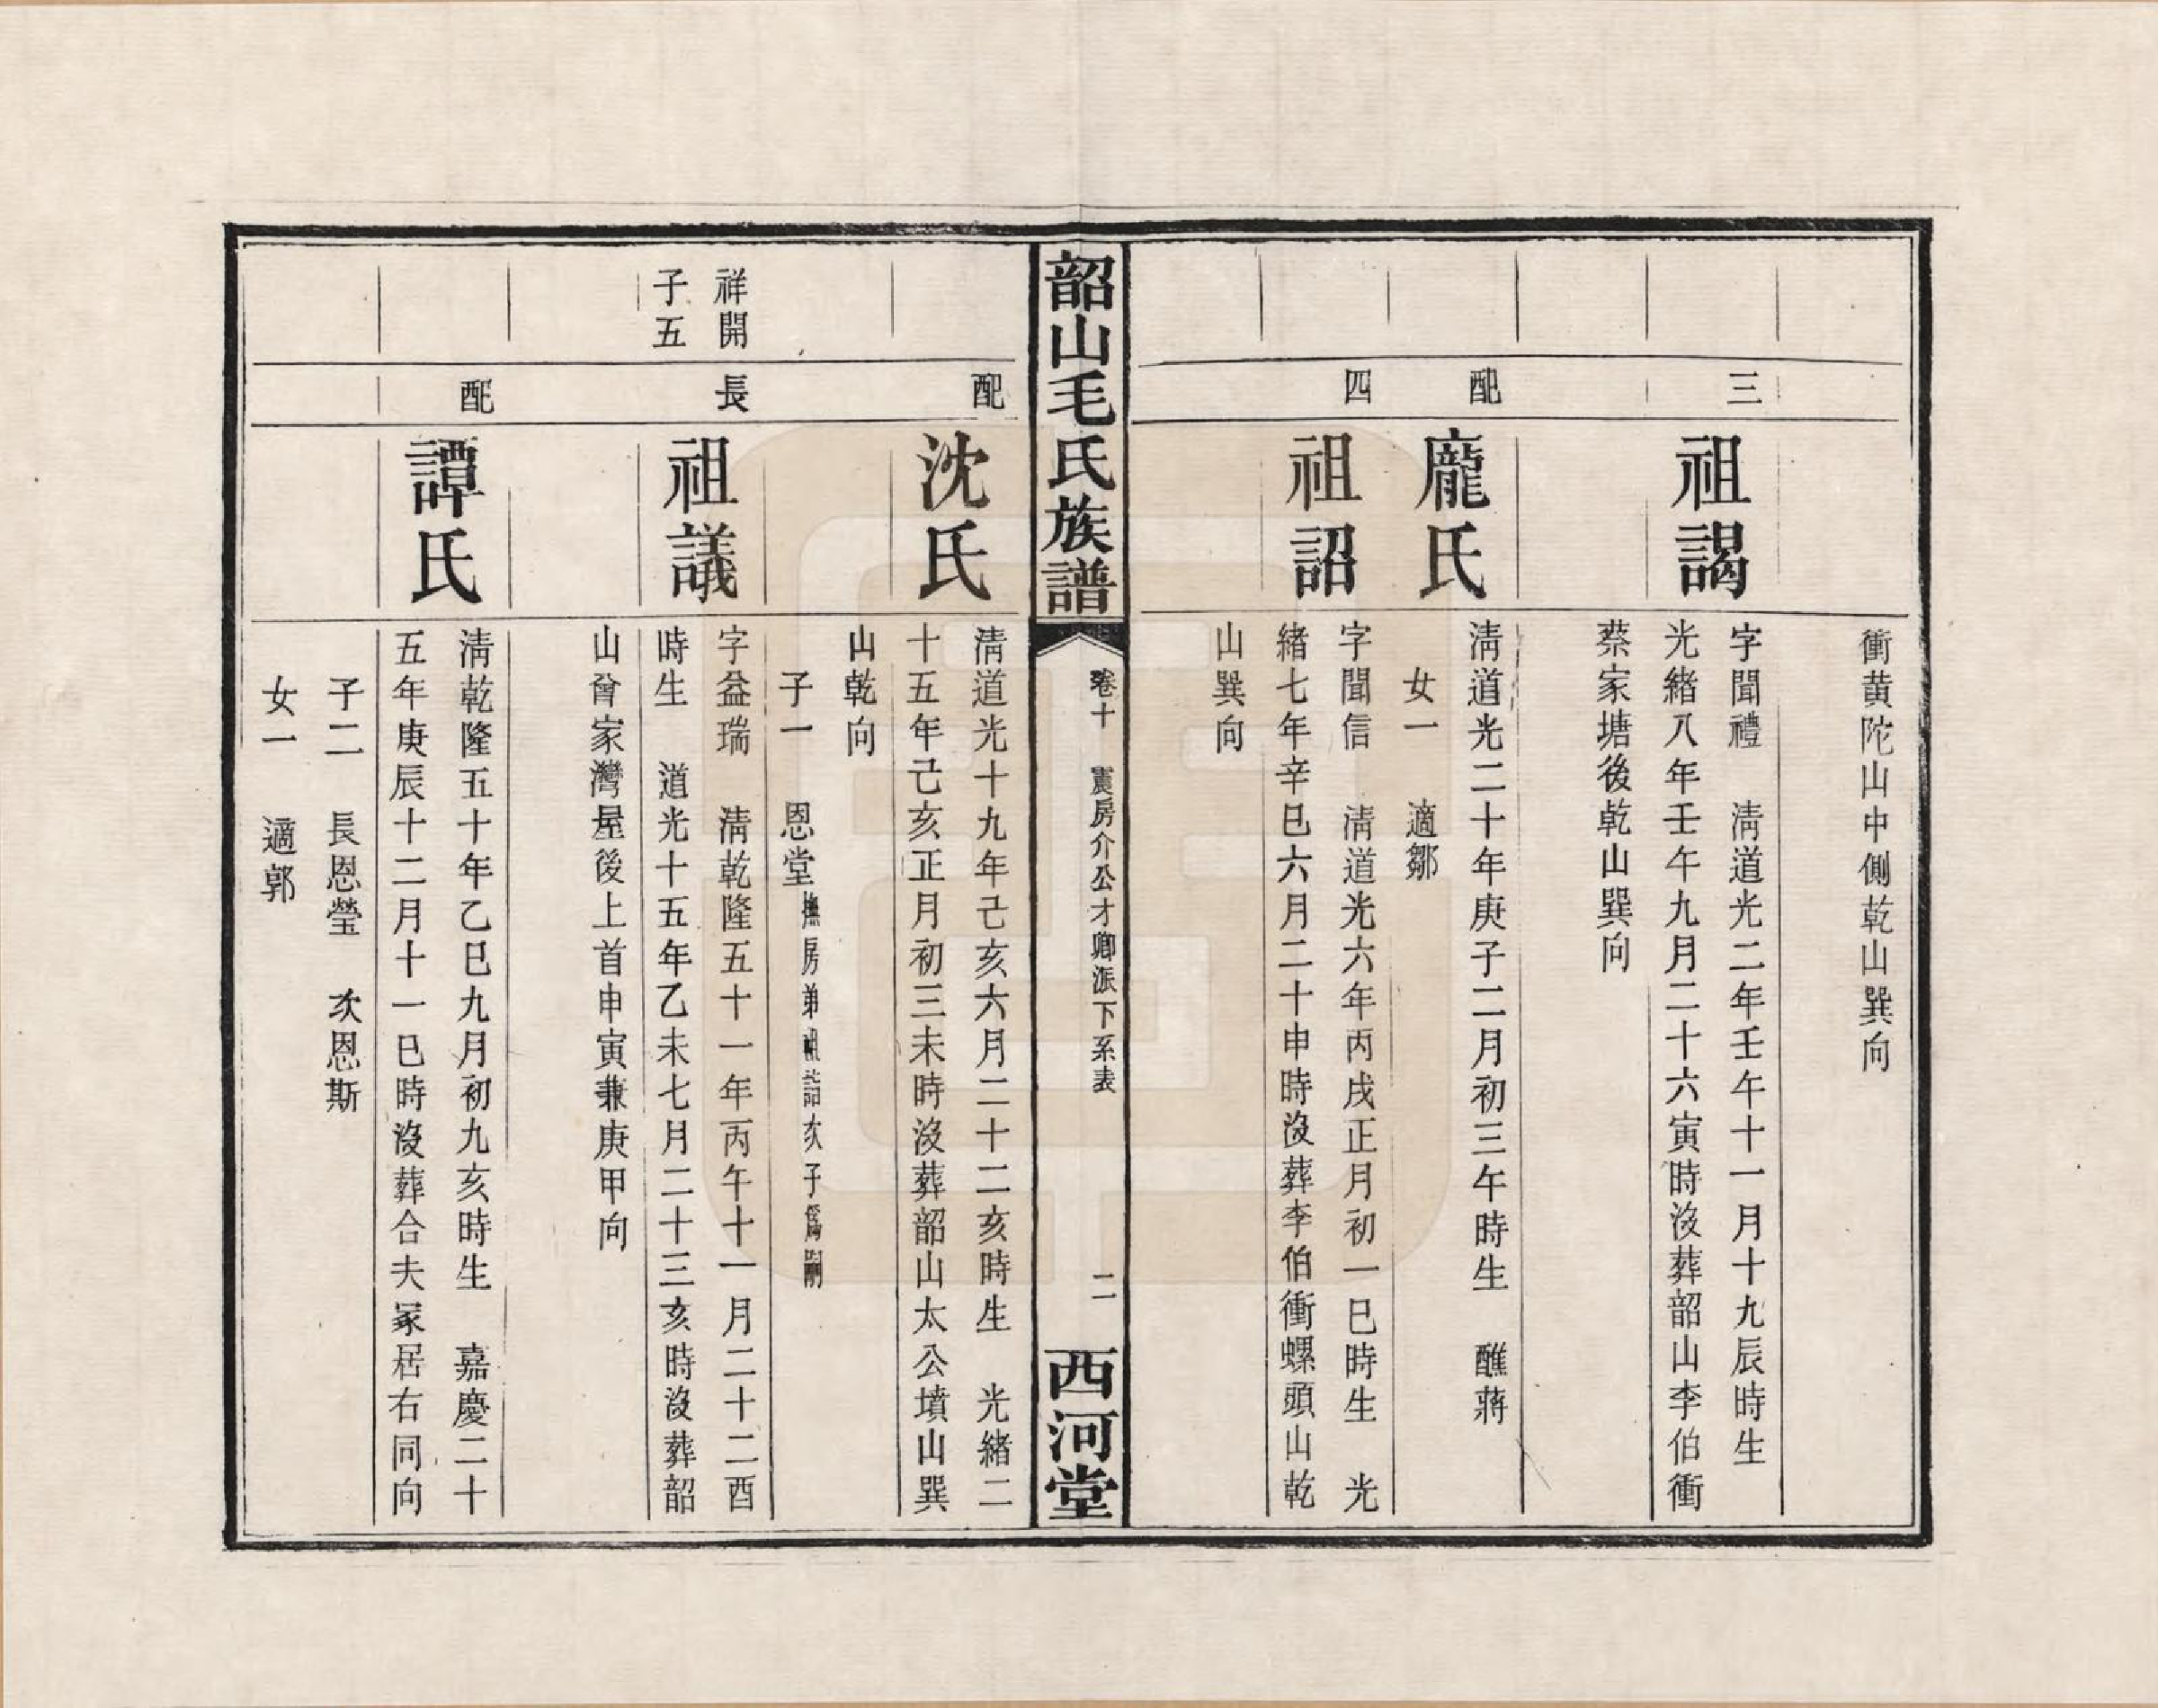 衝黃陀山中側乾山巽向
三
祖謁
字聞禮　清道光二年壬午十一月十九辰時生
光緒八年壬午九月二十六寅時沒葬韶山李伯衝
蔡家塘後乾山巽向
配
龐氏
清道光二十年庚子二月初三午時生　醮蔣
女一　適鄒
四
祖詔
字聞信　清道光六年丙戌正月初一巳時生　光
緒七年辛巳六月二十申時沒葬李伯衝螺頭山乾
山巽向
韶山毛氏族譜
卷十　震房介公才卿派下系表
二
西河堂
配
沈氏
清道光十九年己亥六月二十二亥時生　光緒二
十五年己亥正月初三未時沒葬韶山太公墳山巽
山乾向
子一　恩堂撫房弟祖詰次子爲嗣
祥開
子五
長
祖議
字益瑞　清乾隆五十一年丙午十一月二十二酉
時生　道光十五年乙未七月二十三亥時沒葬韶
山曾家灣屋後上首申寅兼庚甲向
配
譚氏
清乾隆五十年乙巳九月初九亥時生　嘉慶二十
五年庚辰十二月十一巳時沒葬合夫冢居右同向
子二　長恩瑩　次恩斯
女一　適郭